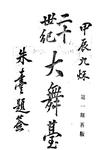 甲辰九秌
第一期再版
二十
世紀
大舞臺
題簽